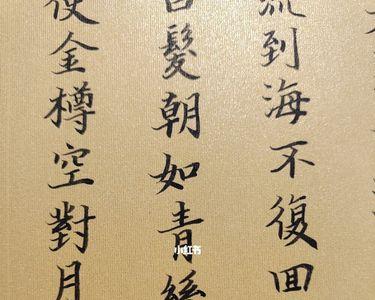 流到海不復回
白髮朝如青絲
使金樽空對月
小红书